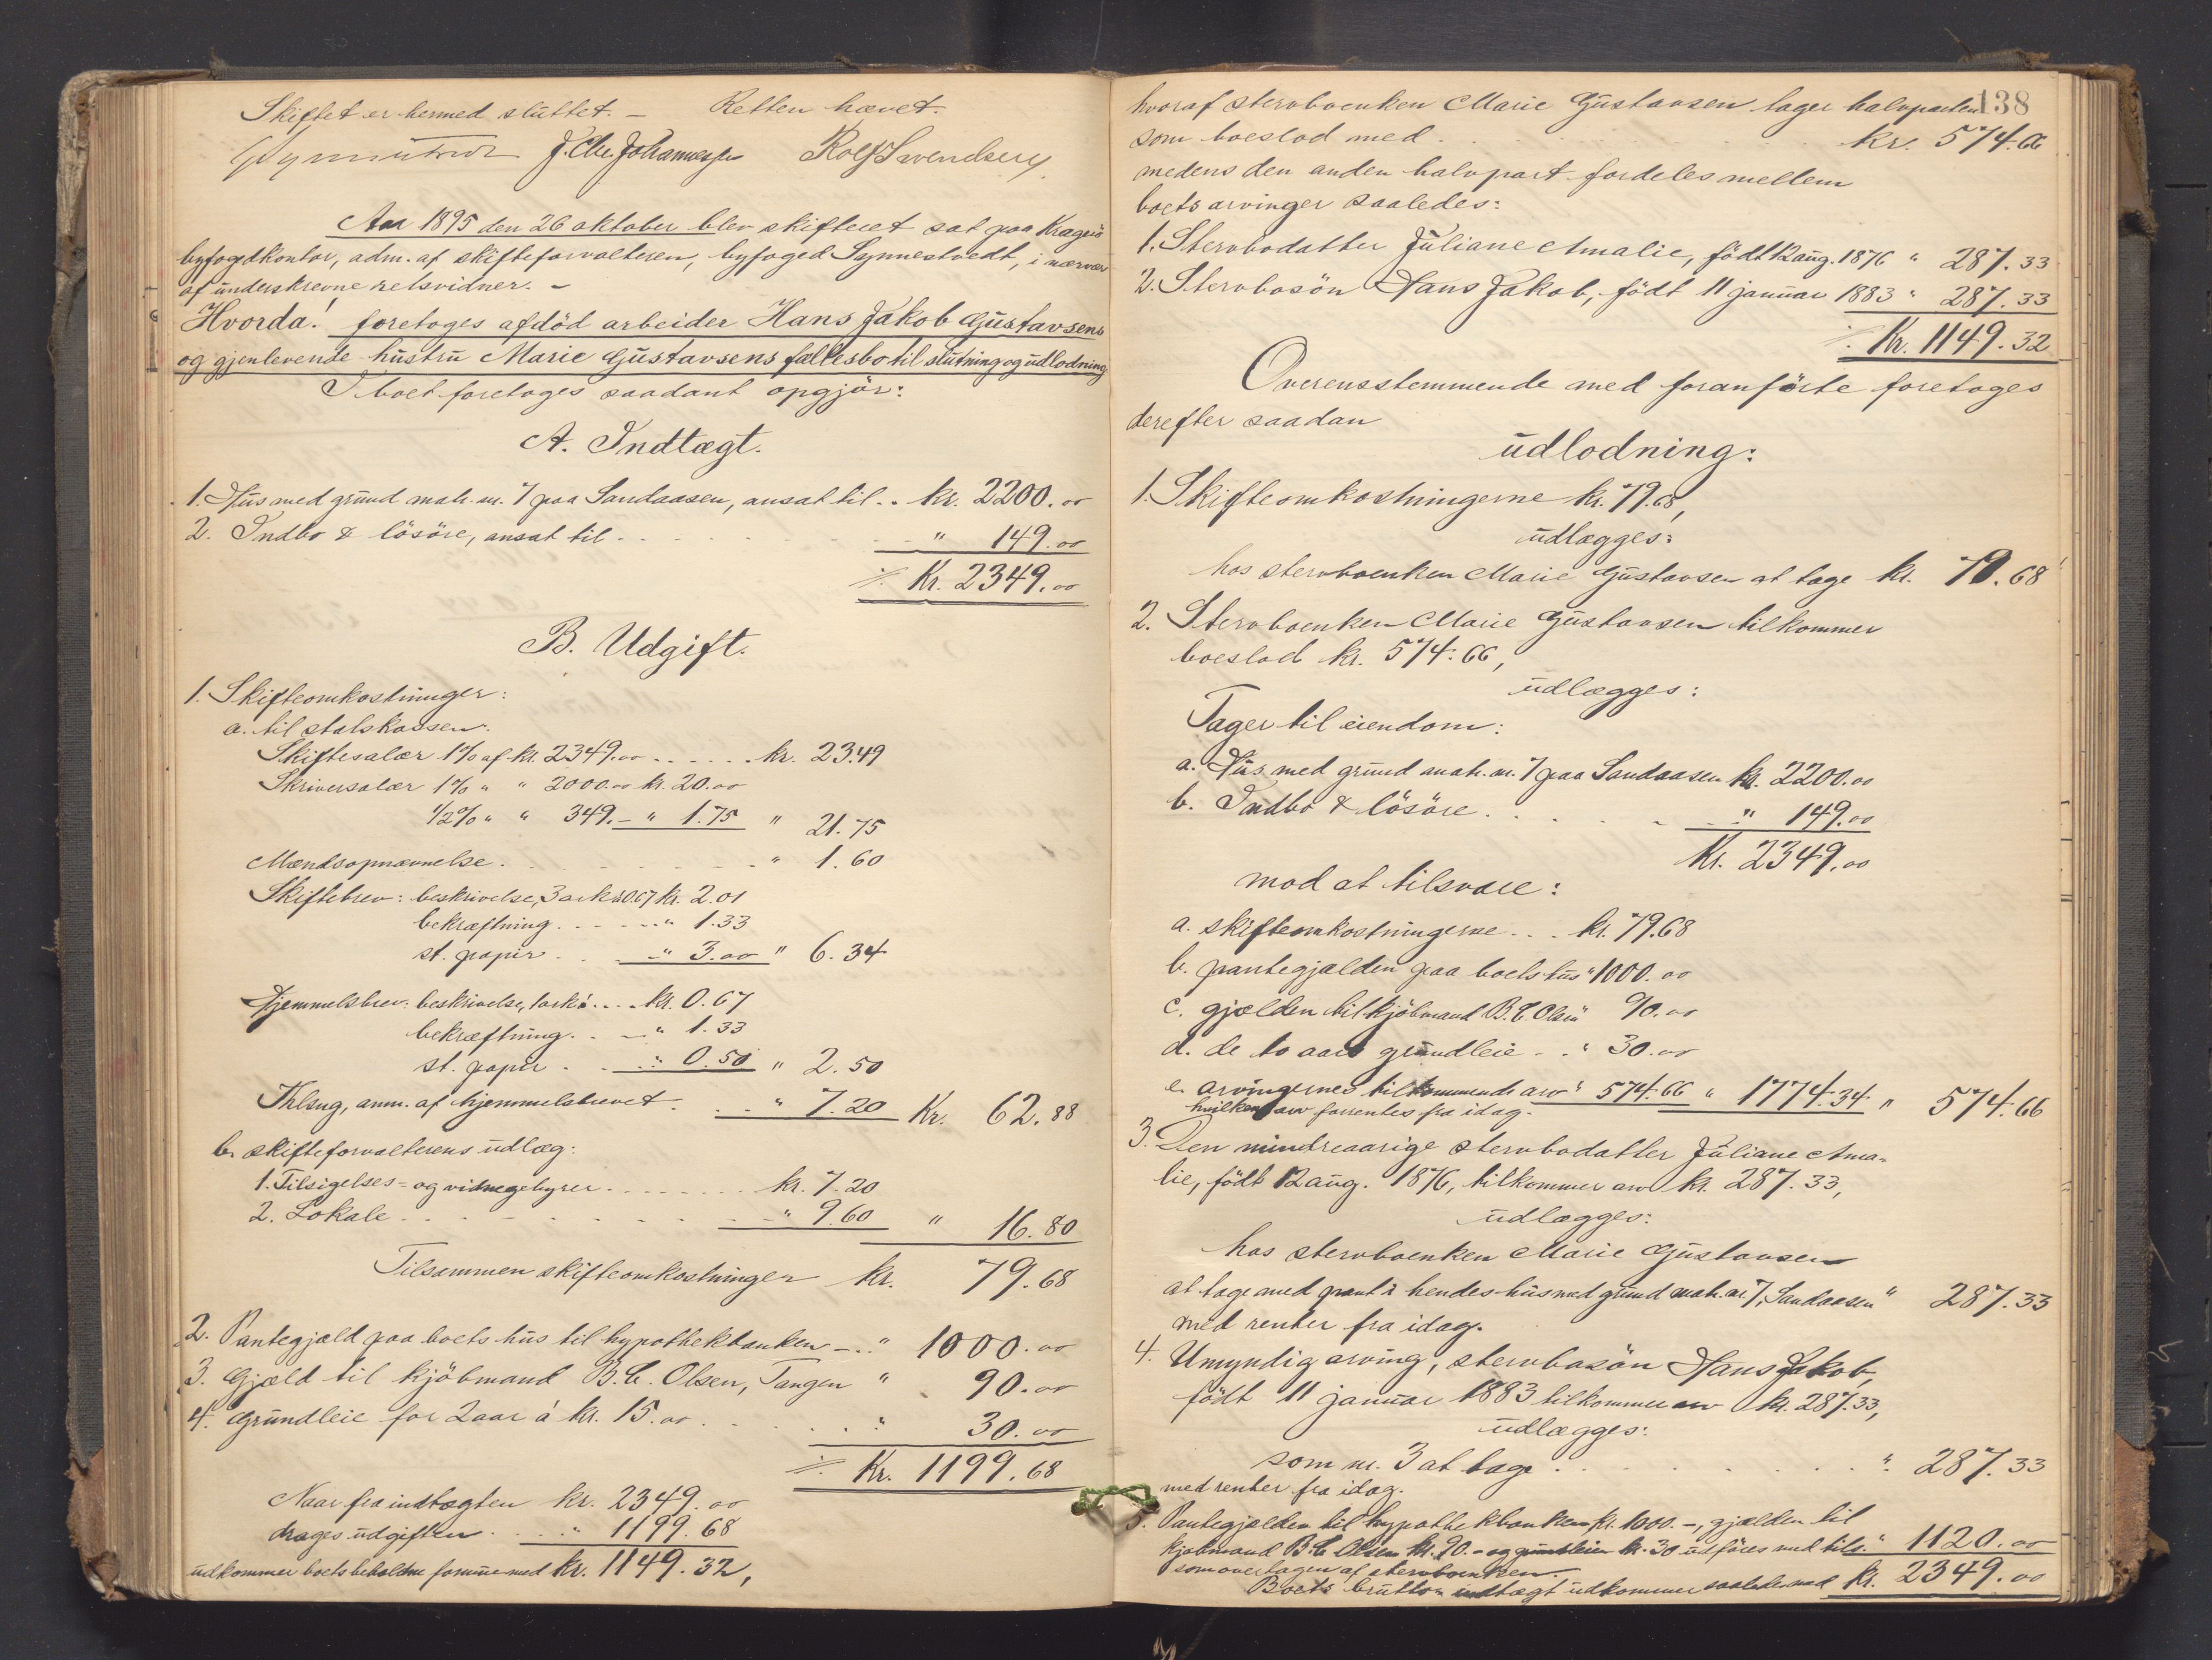 Skiftet er hermed sluttet. – Retten hævet.
J. Chr. Johannesen Rolf Svendsen
Aar 1895 den 26 oktober blev skifteret sat paa Kragerö
byfogdkontor, adm. af skifteforvalteren, byfoged Synnestvedt, i nærvær
af underskrevne retsvidner. –
Hvorda! foretoges afdöd arbeider Hans Jakob Gustavsens
og gjenlevende hustru Marie Gustavsens fællesbo til slutning og udlodning
I boet foretoges saadant opgjör:
A. Indtægt.
1. Hus med grund matr. nr. 7 paa Sandaasen, ansat til .. kr. 2200.00
2. Indbo & lösöre, ansat til . . . " 149.00
./. Kr. 2349.00
B. Udgift.
1. Skifteomkostninger:
a. til statskassen.
Skiftesalær 1% af kr. 2349.00 . . . . . . kr. 23.49
Skriversalær 1% " " 2000.00 kr. 20.00
1/2% " " 349.– " 1.75 " 21.75
Mændsopnævnelse . . . " 1.60
Skiftebrev: beskrivelse, 3 ark à 0.67 kr. 2.01
bekræftning . . . . . " 1.33
st. papir . . . " 3.00 " 6.34
Hjemmelsbrev: beskrivelse, 1 ark à . . . kr. 0.67
bekræftning . . . " 1.33
st. papir . . . " 0.50 " 2.50
Thlsng, anm. af hjemmelsbrevet . . . " 7.20 Kr. 62.88
b. skifteforvalterens udlæg:
1. Tilsigelses- og vidnegebyrer . . . . . . kr. 7.20
2. Lokale . . . " 9.60 " 16.80
Tilsammen skifteomkostninger kr. 79.68
2. Pantegjæld paa boets hus til hypothekbanken – . . " 1000.00
3. Gjæld til kjöbmand B. C. Olsen, Tangen " 90.00
4. Grundleie for 2 aar à kr. 15.00 . . . " 30.00
./. Kr. 1199.68
Naar fra indtægten kr. 2349.00
drages udgiften . . . " 1199.68
udkommer boets beholdne formue med kr. 1149.32,
138
hvoraf stervboenken Marie Gustavsen tager halvparten
som boeslod med . . . kr. 574.66
medens den anden halvpart fordeles mellem
boets arvinger saaledes:
1. Stervbodatter Juliane Amalie, födt 12 aug. 1876 " 287.33
2. Stervbosön Hans Jakob, födt 11 januar 1883 " 287.33
./. Kr. 1149.32
Overensstemmende med foranförte foretoges
derefter saadan
udlodning:
1. Skifteomkostningerne kr. 79.68,
udlægges:
hos stervboenken Marie Gustavsen at tage kr. 79.68
2. Stervboenken Marie Gustavsen tilkommer
boeslod kr. 574.66,
udlægges:
Tager til eiendom:
a. Hus med grund matr. nr. 7 paa Sandaasen kr. 2200.00
b. Indbo & lösöre . . . " 149.00
Kr. 2349.00
mod at tilsvare:
a. skifteomkostningerne . . . kr. 79.68
b. pantegjælden paa boets hus " 1000.00
c. gjælden til kjöbmand B. C. Olsen " 90.00
d. de to aars grundleie . . " 30.00
e. arvingernes tilkommende arv " 574.66 " 1774.34 " 574.66
hvilken arv forrentes fra idag.
3. Den mindreaarige stervbodatter Juliane Ama-
lie, födt 12 aug. 1876, tilkommer arv kr. 287.33,
udlægges:
hos stervboenken Marie Gustavsen
at tage med pant i hendes hus med grund matr. nr. 7, Sandaasen " 287.33
med renter fra idag.
4. Umyndig arving, stervbosön Hans Jakob,
födt 11 januar 1883 tilkommer arv kr. 287.33,
udlægges:
som nr. 3 at tage . . . " 287.33
med renter fra idag.
5. Pantegjælden til hypothekbanken kr. 1000.–, gjælden til
kjöbmand B. C. Olsen kr. 90.– og grundleien kr. 30 udföres med tils. " 1120.00
som overtagen af stervboenken.
Boets brutto indtægt udkommer saaledes med kr. 2349.00